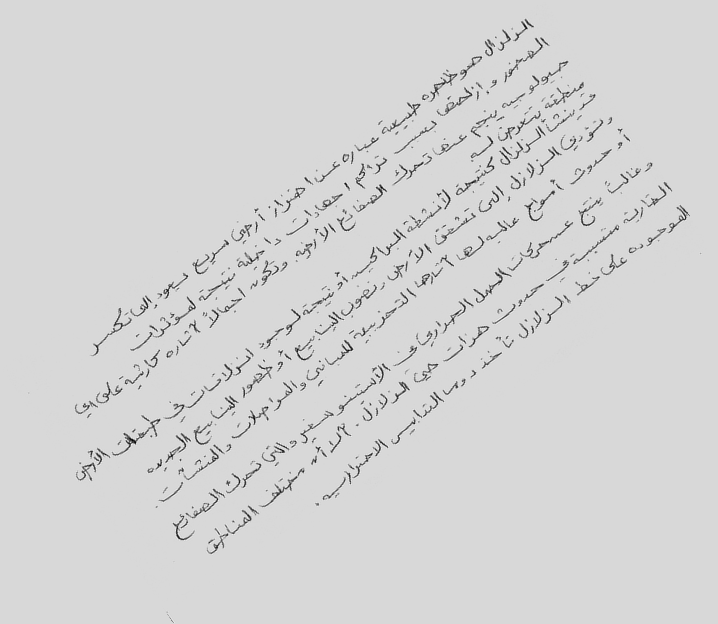 الزلزال هو ظاهره طبيعية عباره عن اهتزاز أرضي سريع يعود الى تكسر
الصخور وإزاحتها بسبب تراكم اجهادات داخلية نتيجة لمؤثرات
جيولوجيه ينجم عنها تحرك الصفائح الأرضيه. وتكون اجمالاً آثاره كارثية على اي
منطقة يتعرض له
قد ينشأ الزلزال كنتيجة لأنشطة البراكين أو نتيجة لوجود انزلاقات في طبقات الأرض
وتؤدي الزلازل إلى تشقق الأرض ونضوب الينابيع أو ظهور الينابيع الجديده
أو حدوث أمواج عاليه لها آثارها التخريبية للمباني والمواصلات والمنشآت.
وغالباً ينتج عن حركات الحمل الحراري في الأستينوسفير والتي تحرك الصفائح
القارية متسببة في حدوث هزات هي الزلازل. كما أن مختلف المناطق
الموجوده على خط الزلازل تأخذ دوما التدابير الاحترازيه.